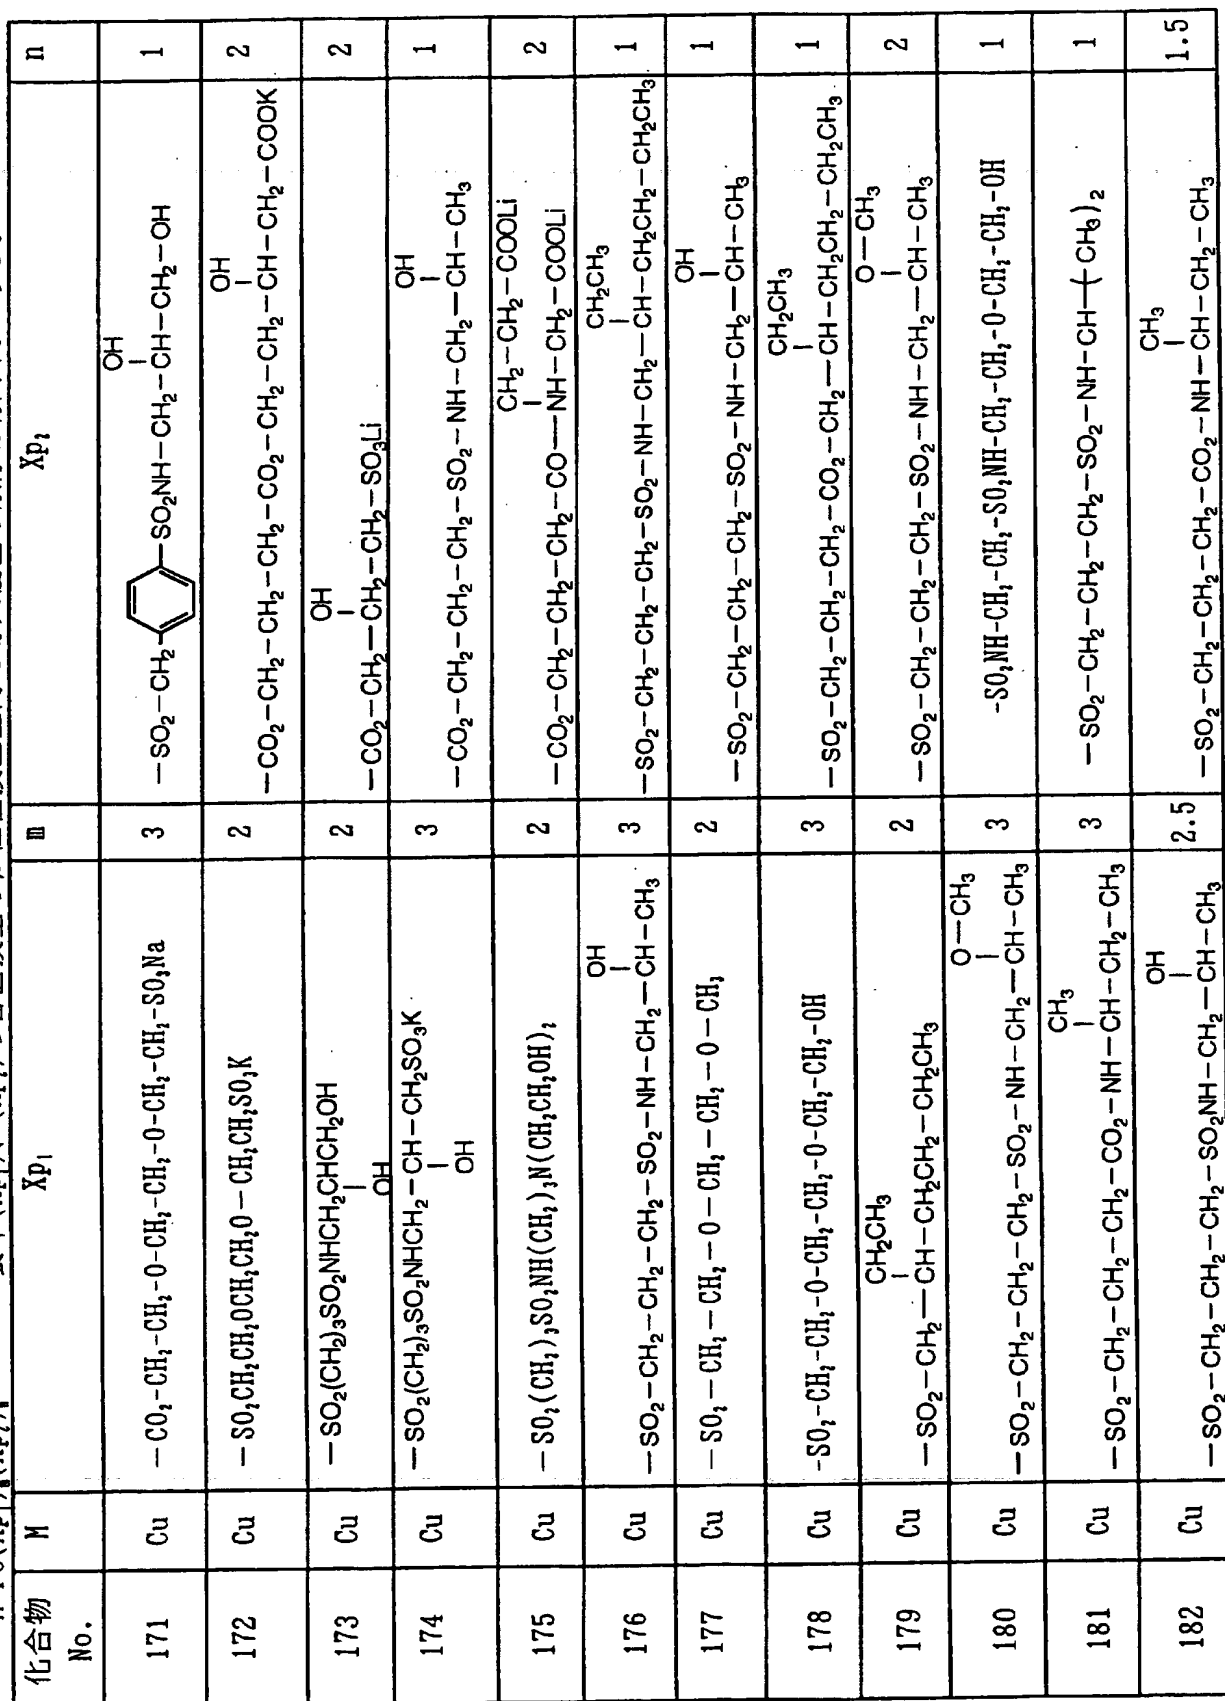 化合物 No. M Xp₁ m Xp₂ n
171 Cu —CO₂-CH₂-CH₂-O-CH₂-CH₂-O-CH₂-CH₂-SO₃Na 3 OH —SO₂—CH₂— —SO₂NH—CH₂—CH—CH₂—OH 1
172 Cu —SO₂CH₂CH₂OCH₂CH₂O—CH₂CH₂SO₃K 2 OH —CO₂—CH₂—CH₂—CH₂—CO₂—CH₂—CH₂—CH₂—CH—CH₂—COOK 2
173 Cu —SO₂(CH₂)₃SO₂NHCH₂CHCH₂OH OH 2 OH —CO₂—CH₂—CH₂—CH₂—SO₃Li 2
174 Cu —SO₂(CH₂)₃SO₂NHCH₂—CH—CH₂SO₃K OH 3 OH —CO₂—CH₂—CH₂—CH₂—SO₂—NH—CH₂—CH—CH₃ 1
175 Cu —SO₂(CH₂)₃SO₂NH(CH₂)₃N(CH₂CH₂OH)₂ 2 CH₂—CH₂—COOLi —CO₂—CH₂—CH₂—CH₂—CO—NH—CH₂—COOLi 2
176 Cu OH —SO₂—CH₂—CH₂—CH₂—SO₂—NH—CH₂—CH—CH₃ 3 CH₂CH₃ —SO₂—CH₂—CH₂—CH₂—SO₂—NH—CH₂—CH—CH₂CH₂—CH₂CH₃ 1
177 Cu —SO₂—CH₂—CH₂—O—CH₂—CH₂—O—CH₃ 2 OH —SO₂—CH₂—CH₂—CH₂—SO₂—NH—CH₂—CH—CH₃ 1
178 Cu -SO₂-CH₂-CH₂-O-CH₂-CH₂-O-CH₂-CH₂-OH 3 CH₂CH₃ —SO₂—CH₂—CH₂—CH₂—CO₂—CH₂—CH—CH₂CH₂—CH₂CH₃ 1
179 Cu CH₂CH₃ —SO₂—CH₂—CH—CH₂CH₂—CH₂CH₃ 2 O—CH₃ —SO₂—CH₂—CH₂—CH₂—SO₂—NH—CH₂—CH—CH₃ 2
180 Cu O—CH₃ —SO₂—CH₂—CH₂—CH₂—SO₂—NH—CH₂—CH—CH₃ 3 -SO₂NH-CH₂-CH₂-SO₂NH-CH₂-CH₂-O-CH₂-CH₂-OH 1
181 Cu CH₃ —SO₂—CH₂—CH₂—CH₂—CO₂—NH—CH—CH₂—CH₃ 3 —SO₂—CH₂—CH₂—CH₂—SO₂—NH—CH—(CH₃)₂ 1
182 Cu OH —SO₂—CH₂—CH₂—CH₂—SO₂NH—CH₂—CH—CH₃ 2.5 CH₃ —SO₂—CH₂—CH₂—CH₂—CO₂—NH—CH—CH₂—CH₃ 1.5